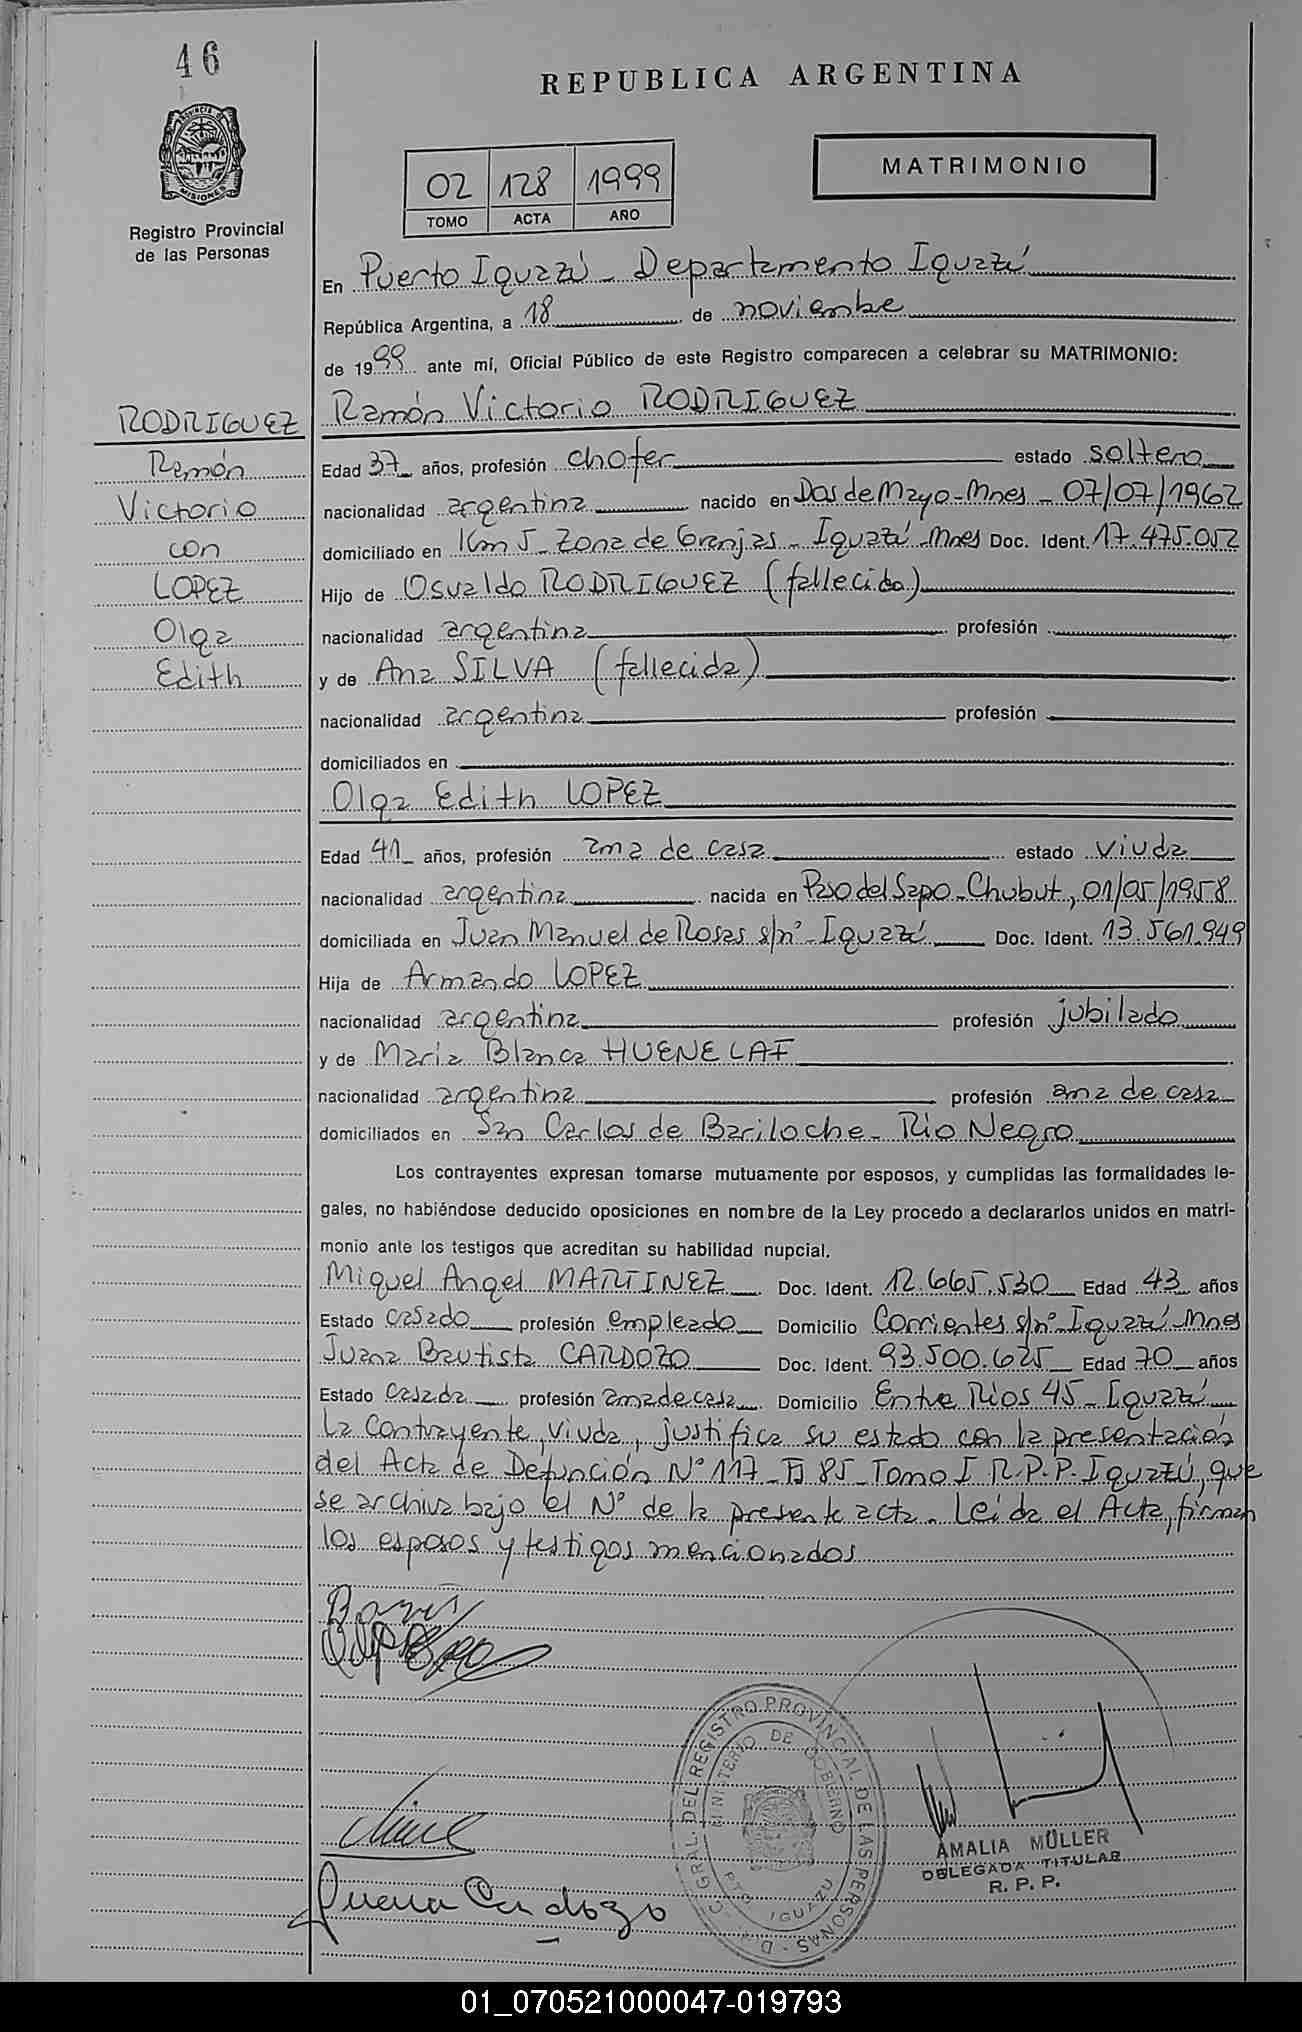 46
REPUBLICA ARGENTINA
PROVINCIA DE
MISIONES
Registro Provincial
de las Personas
02 128 1999
TOMO ACTA AÑO
MATRIMONIO
En Puerto Iguazú - Departamento Iguazú
República Argentina, a 18 de noviembre
de 1999 ante mí, Oficial Público de este Registro comparecen a celebrar su MATRIMONIO:
RODRIGUEZ
Ramón
Victorio
con
LOPEZ
Olga
Edith
Ramón Victorio RODRIGUEZ
Edad 37 años, profesión chofer estado soltero
nacionalidad argentina nacido en Dos de Mayo - Mnes - 07/07/1962
domiciliado en Km 5 - Zona de Granjas - Iguazú - Mnes Doc. Ident. 17.475.052
Hijo de Osvaldo RODRIGUEZ (fallecido)
nacionalidad argentina profesión
y de Ana SILVA (fallecida)
nacionalidad argentina profesión
domiciliados en
Olga Edith LOPEZ
Edad 41 años, profesión ama de casa estado viuda
nacionalidad argentina nacida en Paso del Sapo - Chubut, 01/05/1958
domiciliada en Juan Manuel de Rosas s/nº - Iguazú Doc. Ident. 13.561.949
Hija de Armando LOPEZ
nacionalidad argentina profesión jubilado
y de María Blanca HUENELAF
nacionalidad argentina profesión ama de casa
domiciliados en San Carlos de Bariloche - Río Negro
Los contrayentes expresan tomarse mutuamente por esposos, y cumplidas las formalidades le-
gales, no habiéndose deducido oposiciones en nombre de la Ley procedo a declararlos unidos en matri-
monio ante los testigos que acreditan su habilidad nupcial.
Miguel Angel MARTINEZ Doc. Ident. 12.665.530 Edad 43 años
Estado casado profesión empleado Domicilio Corrientes s/nº - Iguazú - Mnes
Juana Bautista CARDOZO Doc. Ident. 93.500.625 Edad 70 años
Estado casada profesión ama de casa Domicilio Entre Ríos 45 - Iguazú
La contrayente, viuda, justifica su estado con la presentación
del Acta de Defunción Nº 117 - Fº 85 - Tomo I R.P.P. Iguazú, que
se archiva bajo el Nº de la presente acta. Leída el Acta, firman
los esposos y testigos mencionados
Juana Cardozo
DEL REGISTRO PROVINCIAL DE LAS PERSONAS
MINISTERIO DE GOBIERNO
PTO. IGUAZU
AMALIA MÜLLER
DELEGADA TITULAR
R. P. P.
01_070521000047-019793